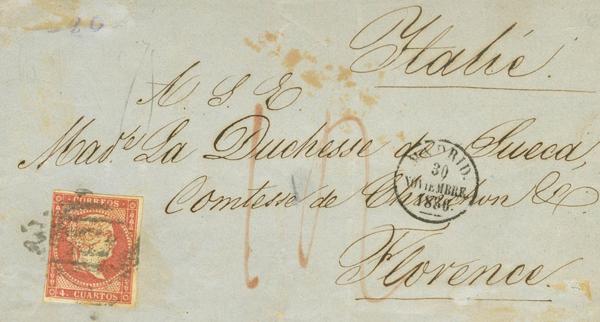 26
Italie.
A. S. E.
Mad.e La Duchesse de Sueca,
Comtesse de Chinchon &
Florence.
MADRID.
30
NOVIEMBRE
CORREOS
4. CUARTOS